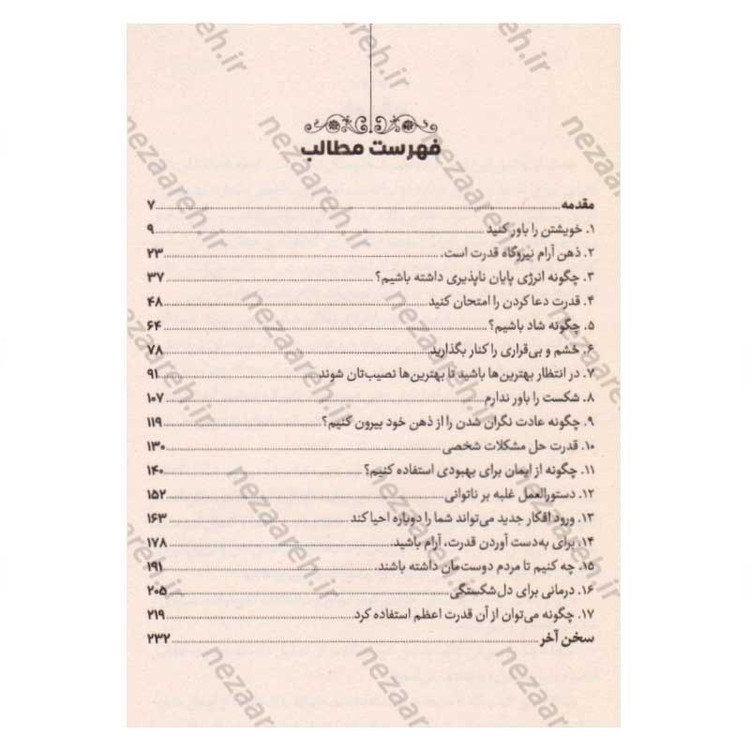 فهرست مطالب
مقدمه ........ ۷
۱. خویشتن را باور کنید ........ ۹
۲. ذهن آرام نیروگاه قدرت است. ........ ۲۳
۳. چگونه انرژی پایان ناپذیری داشته باشیم؟ ........ ۳۷
۴. قدرت دعا کردن را امتحان کنید ........ ۴۸
۵. چگونه شاد باشیم؟ ........ ۶۴
۶. خشم و بی‌قراری را کنار بگذارید ........ ۷۸
۷. در انتظار بهترین‌ها باشید تا بهترین‌ها نصیب‌تان شوند ........ ۹۱
۸. شکست را باور ندارم ........ ۱۰۷
۹. چگونه عادت نگران شدن را از ذهن خود بیرون کنیم؟ ........ ۱۱۹
۱۰. قدرت حل مشکلات شخصی ........ ۱۳۰
۱۱. چگونه از ایمان برای بهبودی استفاده کنیم؟ ........ ۱۴۰
۱۲. دستورالعمل غلبه بر ناتوانی ........ ۱۵۲
۱۳. ورود افکار جدید می‌تواند شما را دوباره احیا کند ........ ۱۶۳
۱۴. برای به‌دست آوردن قدرت، آرام باشید. ........ ۱۷۸
۱۵. چه کنیم تا مردم دوست‌مان داشته باشند. ........ ۱۹۱
۱۶. درمانی برای دل‌شکستگی ........ ۲۰۵
۱۷. چگونه می‌توان از آن قدرت اعظم استفاده کرد. ........ ۲۱۹
سخن آخر ........ ۲۳۲
nezaareh.ir